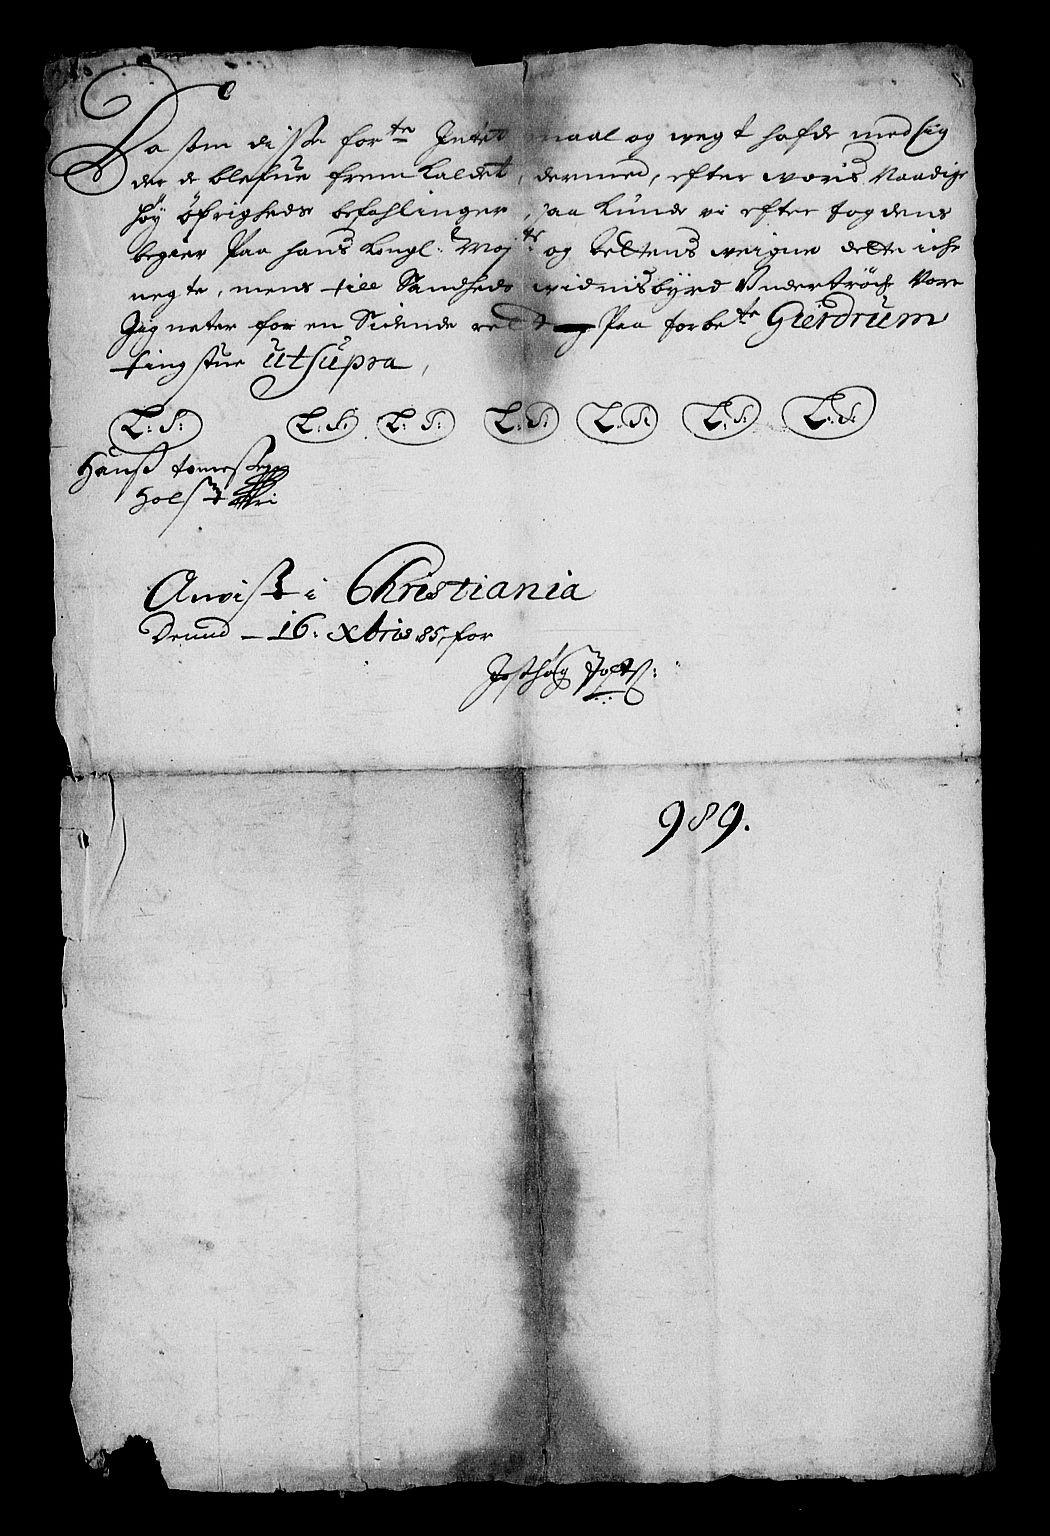 Da som disse for:te Intet maal og wegt hafde med sig
der de blefue frem kaldet, dermed, efter woris Naadige
høy öfrigheds befahlinger, saa kunde vi efter fogdens
begier Paa hans Kongl: May:ts og Rettens weigne dette icke
negte, mens till Sandheds widnisbyrd Undertröch Vore
Zigneter for en Sidende rett Paa forbe:te Gierdrum
tingstue ut supra,
L: S: L: S: L: S: L: S: L: S: L: S: L: S:
Hanß
Holst
Anvist i Christiania
Dennd 16: Xbris 85, for
989.